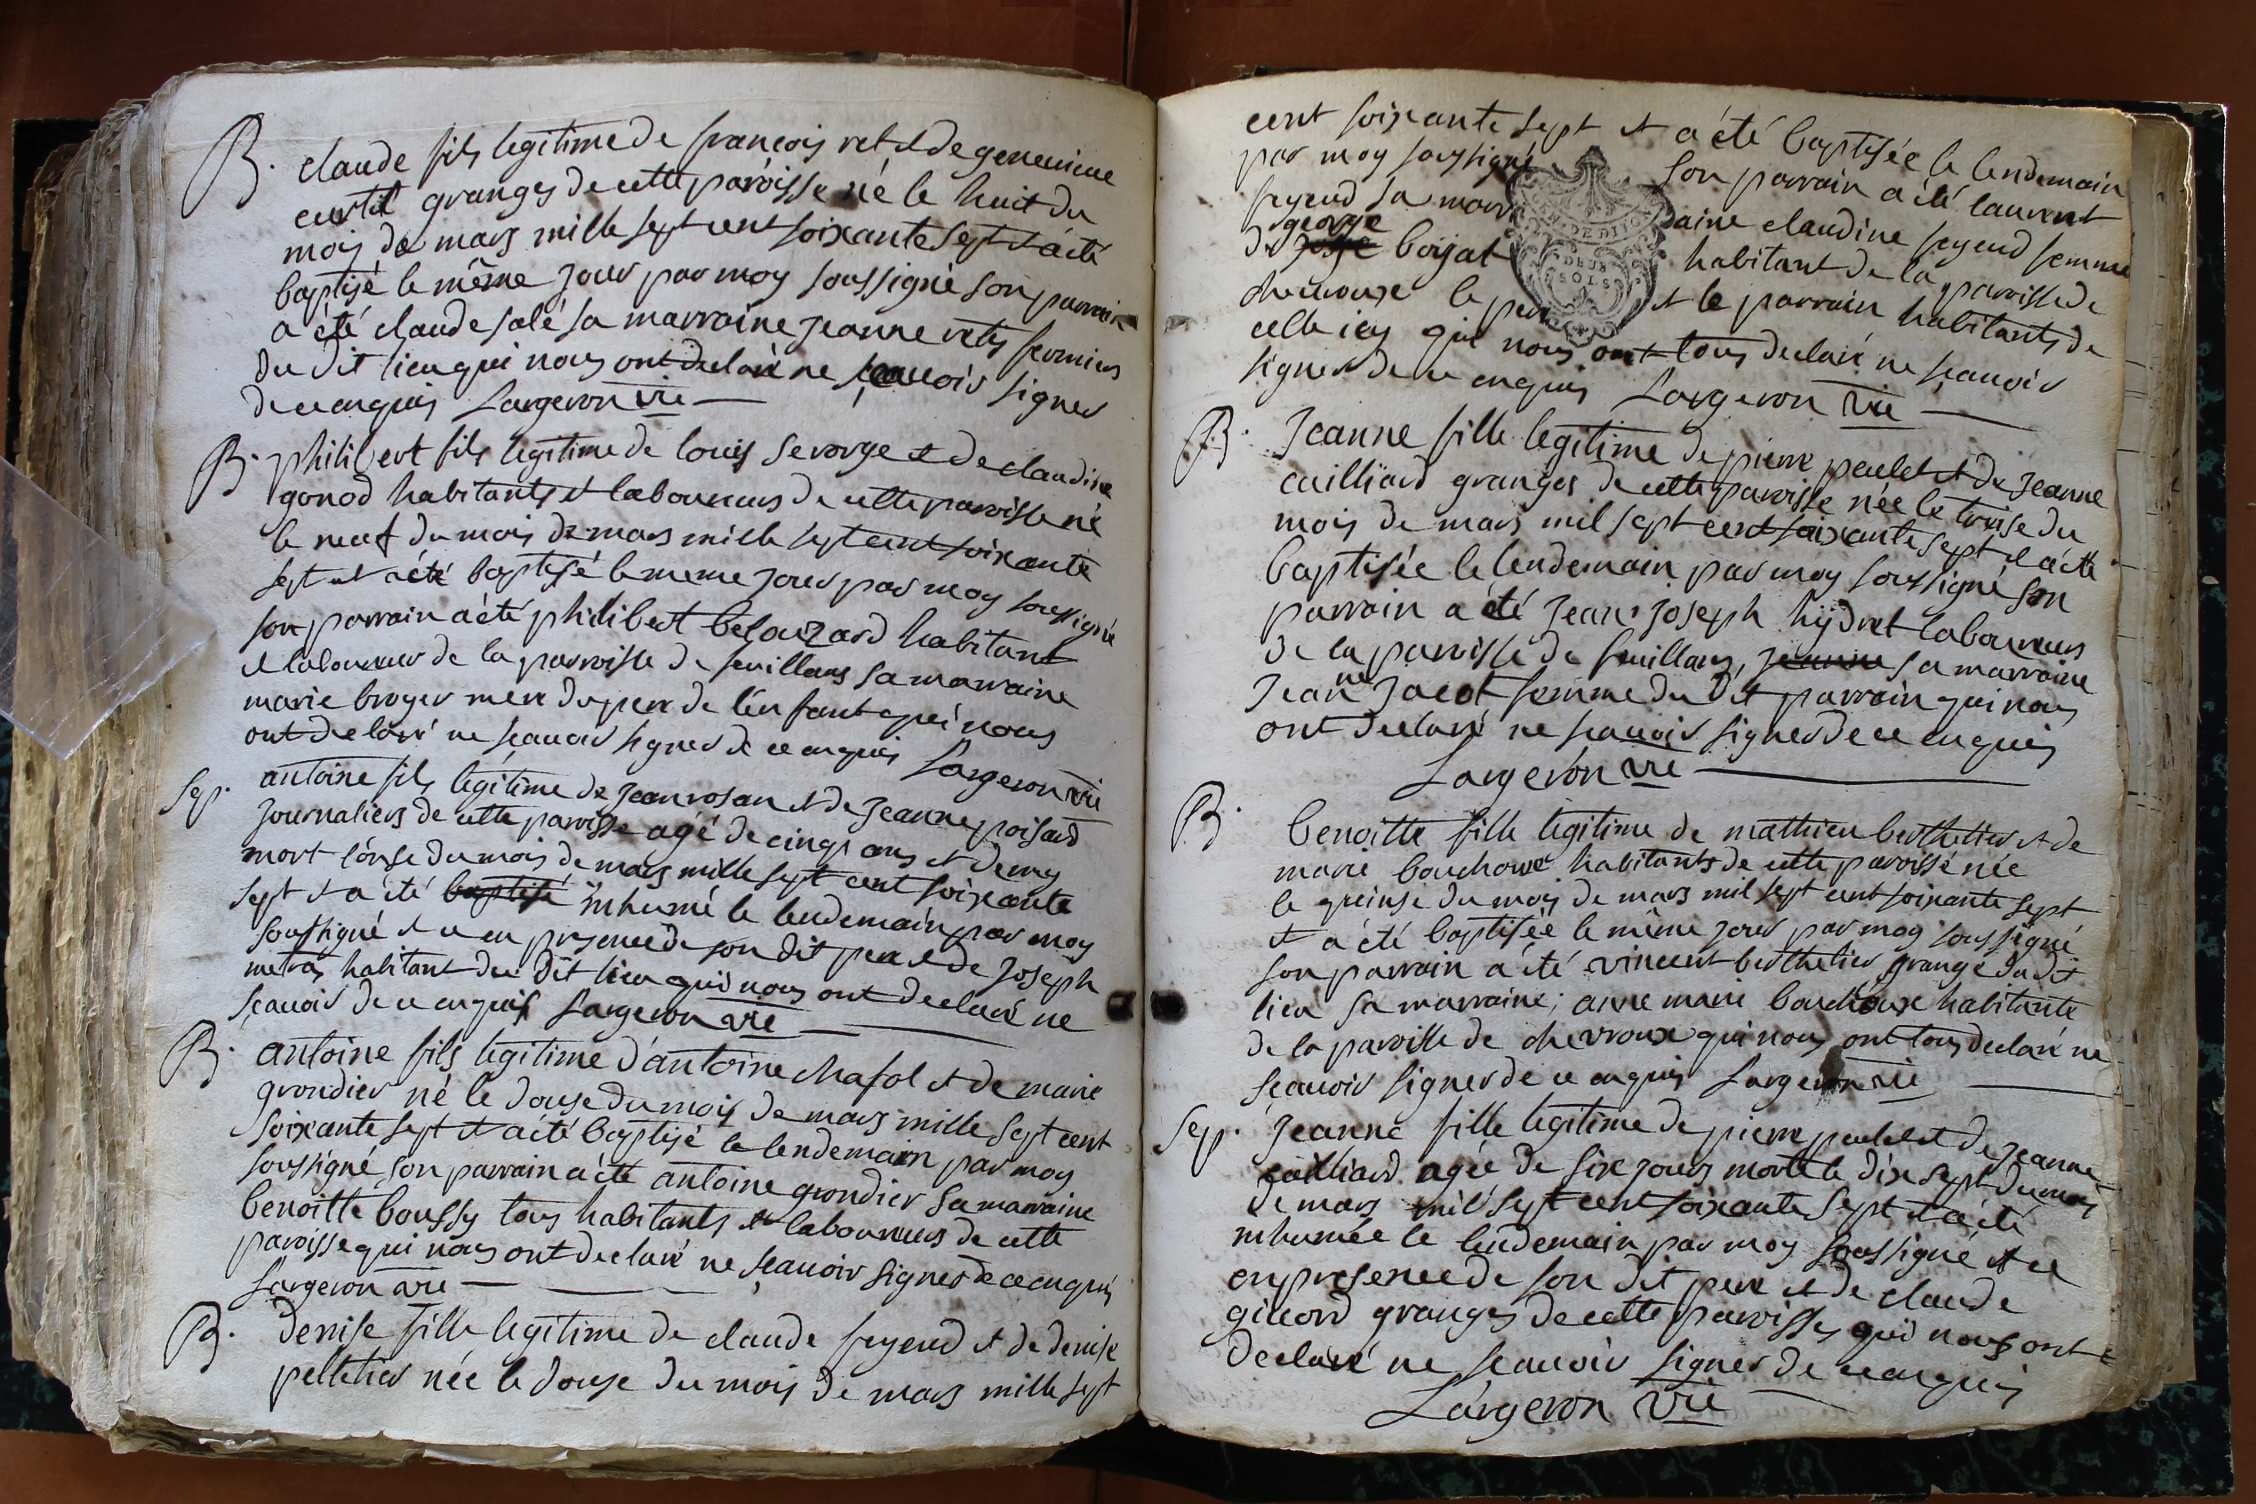 B. claude fils legitime de francois ret et de genevieve
curtil granges de cette paroisse né le huit du
mois de mars mille sept cent soixante sept et a été
baptisé le même jour par moy soussigné son parrain
a été claude salé sa marraine jeanne rets fermiers
du dit lieu qui nous ont declaré ne sçauoir signer
de ce enquis Largeron vic
B. philibert fils legitime de louis serorge et de claudine
gonod habitants et laboureurs de cette paroisse né
le neuf du mois de mars mille sept cent soixante
sept et a été baptisé le meme jour par moy soussigné
son parrain a été philibert belouzard habitant
et laboureur de la parroisse de feuillans sa marraine
marie broyer mere du pere de l'enfant qui nous
ont declaré ne sçauoir signer de ce enquis Largeron vic
Sep. antoine fils légitime de jean rosan et de jeanne poisard
journaliers de cette paroisse agé de cinq ans et demy
mort l'onse du mois de mars mille sept cent soixante
sept et a été baptisé inhumé le lendemain par moy
soussigné et ce en presence de son dit pere et de joseph
metras habitant du dit lieu qui nous ont declaré ne
sçauoir de ce enquis Largeron vic
B. antoine fils legitime d'antoine chasol et de marie
grondier né le douse du mois de mars mille sept cent
soixante sept et a été baptisé le lendemain par moy
soussigné son parrain a été antoine grondier sa marraine
benoitte boussy tous habitants et laboureurs de cette
paroisse qui nous ont declaré ne sçauoir signer de ce enquis
Largeron vic
B. denise fille legitime de claude feyeud et de denise
pelletier née le douse du mois de mars mille sept
cent soixante sept et a été baptisée le lendemain
par moy soussigné son parrain a été laurent
feyeud sa marraine claudine feyeud femme
george
de boyat habitant de la paroisse de
chevroux le pere et le parrain habitants de
celle icy qui nous ont tous declaré ne sçauoir
signer de ce enquis Largeron vic
GEN. DE DIJON
DEUX
SOLS
B. Jeanne fille legitime de pierre peulet et de jeanne
cailliard granges de cette paroisse née le treise du
mois de mars mil sept cent soixante sept et a été
baptisée le lendemain par moy soussigné son
parrain a été jean joseph hydret laboureur
de la paroisse de feuillans, jeanne sa marraine
Jeanne Jacot femme du dit parrain qui nous
ont declaré ne sçauoir signer de ce enquis
Largeron vic
B. benoitte fille legitime de mathieu berthelier et de
marie bouchoux habitants de cette paroisse née
le quinse du mois de mars mil sept cent soixante sept
et a été baptisée le même jour par moy soussigné
son parrain a été vincent berthelier grange du dit
lieu sa marraine; anne marie bouchoux habitante
de la paroisse de chevroux qui nous ont tous declaré ne
sçauoir signer de ce enquis Largeron vic
Sep. Jeanne fille legitime de pierre peulet et de jeanne
cailliard agée de six jours morte le dix sept du mois
de mars mil sept cent soixante sept et a été
inhumée le lendemain par moy soussigné et ce
en presence de son dit pere et de claude
gicard granges de cette paroisse qui nous ont
declaré ne sçauoir signer de ce enquis
Largeron vic